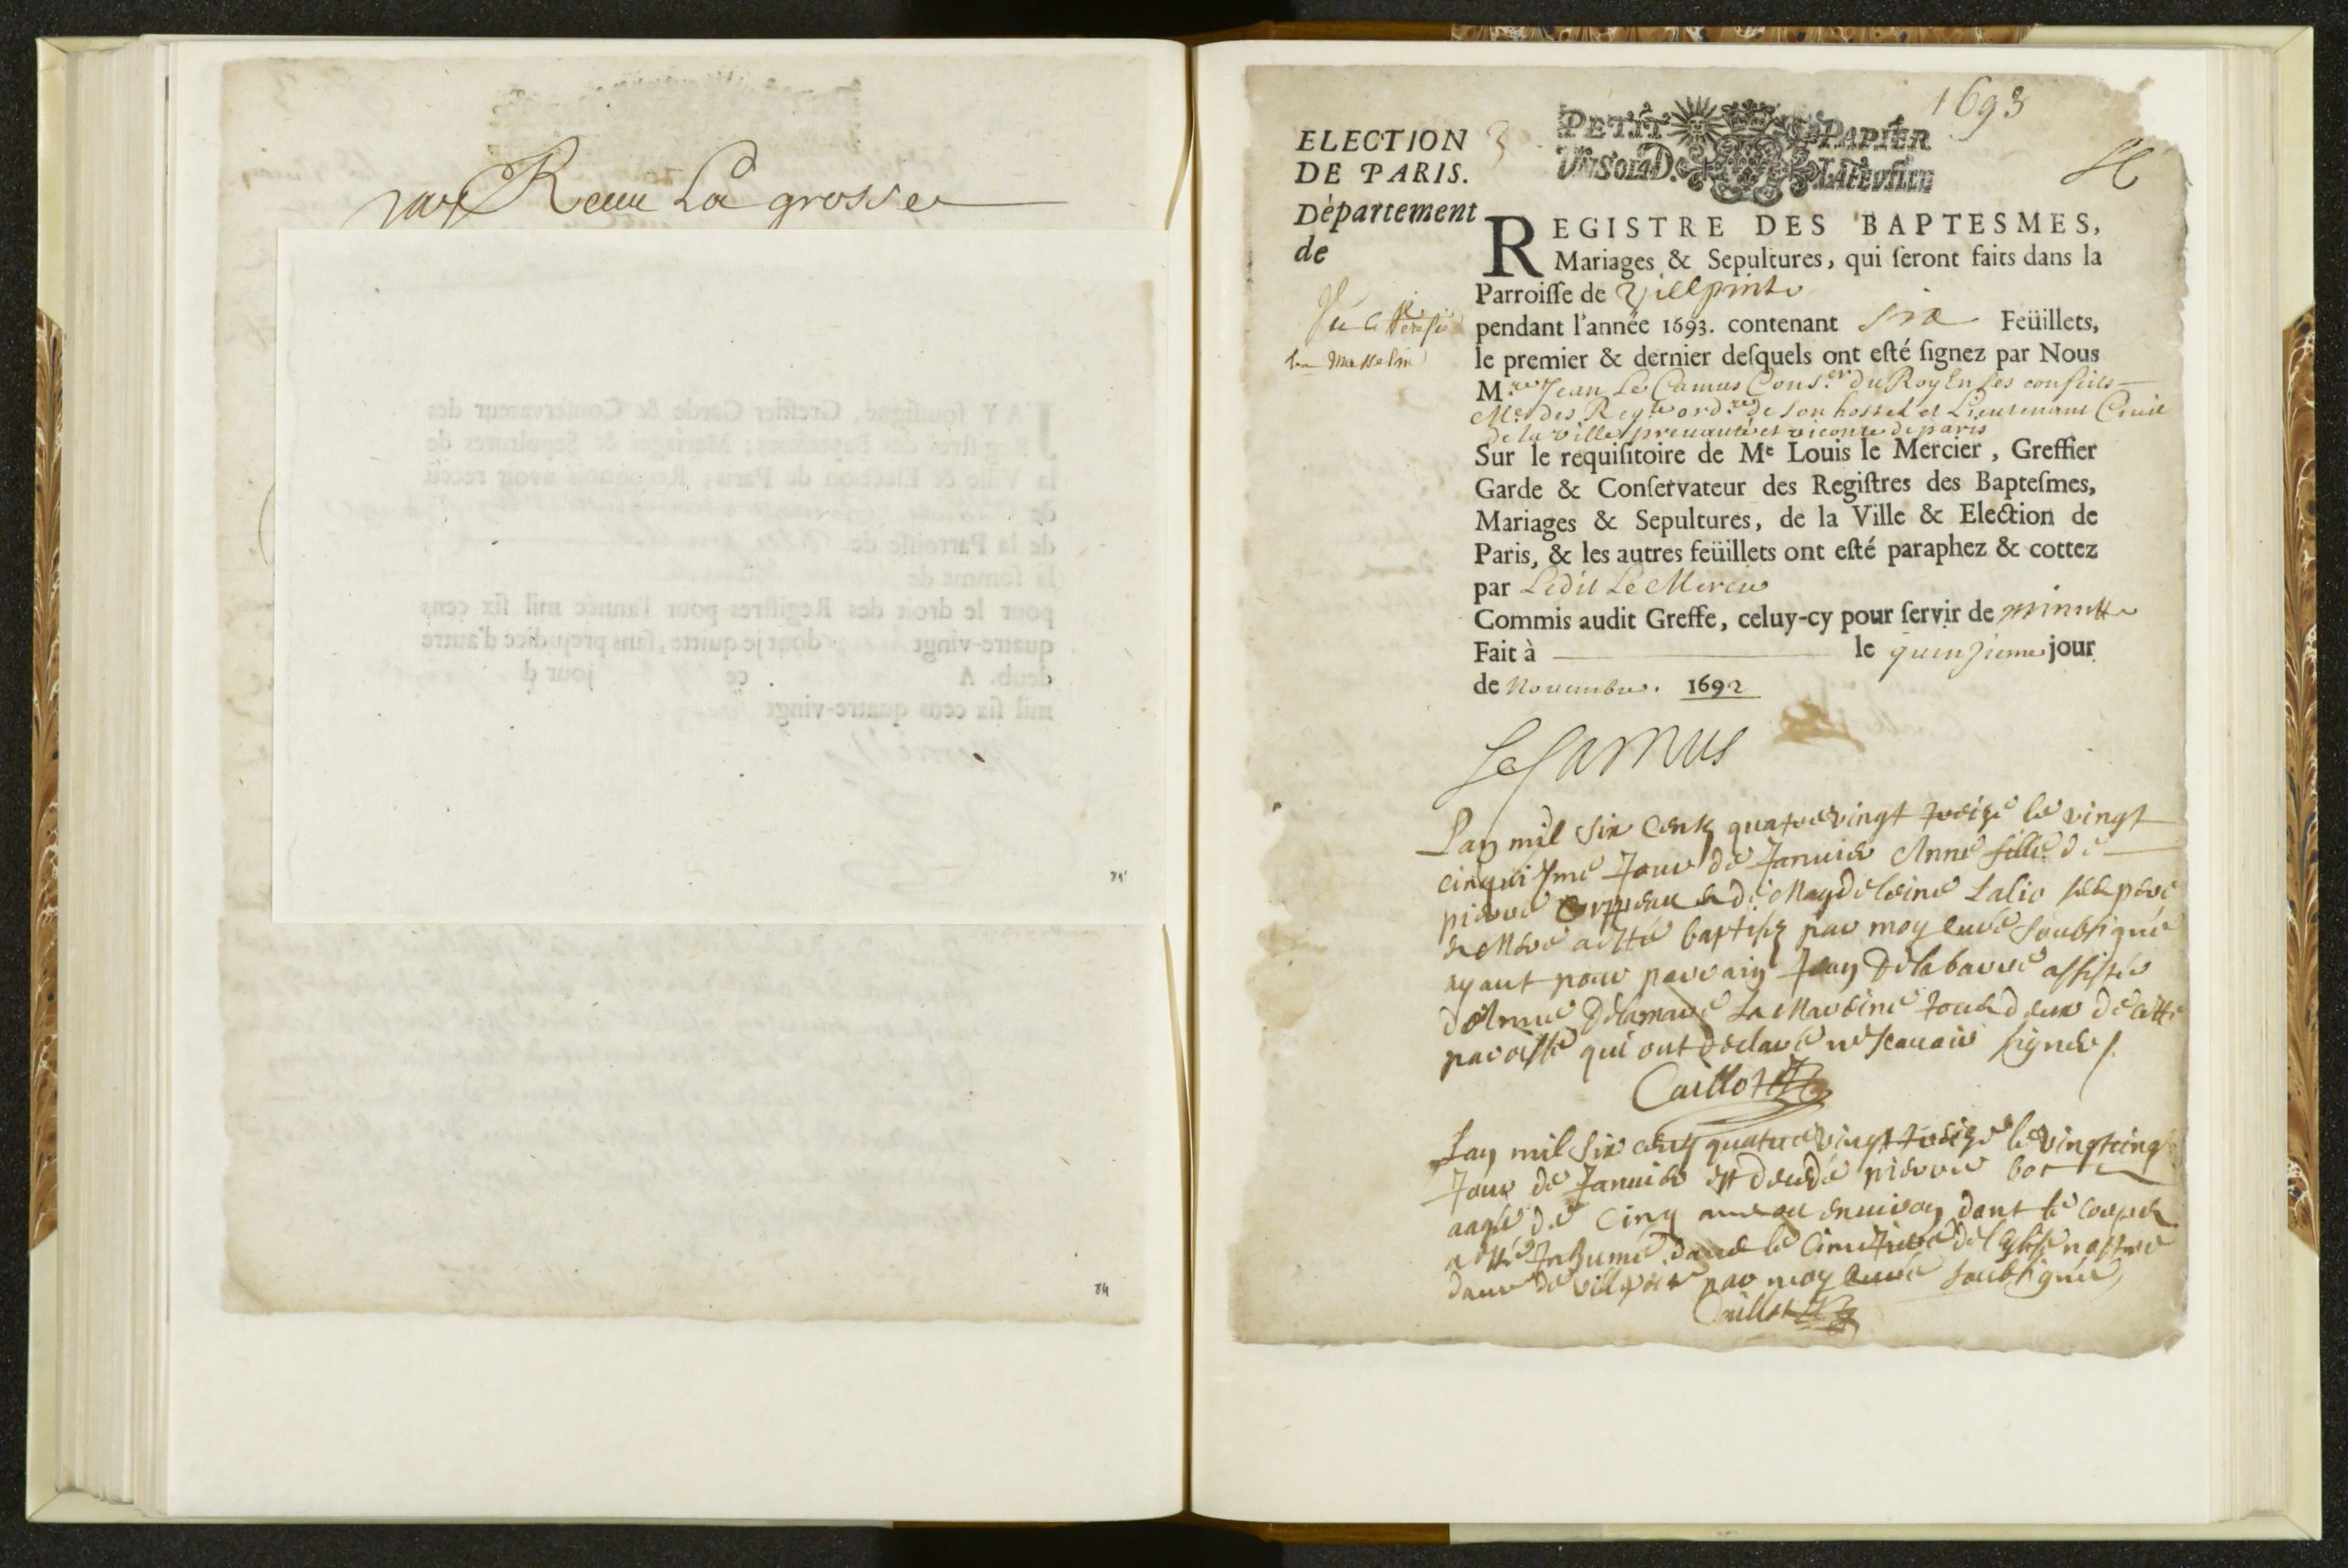 Receu La grosse
1693
ELECTION
DE PARIS.
Département
de
3
PETIT PAPIER
UN SOL 4 D. LA FEUILLE
REGISTRE DES BAPTESMES,
Mariages & Sepultures, qui ſeront faits dans la
Parroiſſe de Villpinte
pendant l'année 1693. contenant six Feüillets,
le premier & dernier deſquels ont eſté ſignez par Nous
M.re Jean Le Camus Cons.er du Roy En ses conseils
Me. des Req.tes ord.res de son hostel et Lieutenant Civil
de la ville prevauté et viconté de paris
Sur le requiſitoire de Me Louis le Mercier, Greffier
Garde & Conſervateur des Regiſtres des Bapteſmes,
Mariages & Sepultures, de la Ville & Election de
Paris, & les autres feüillets ont eſté paraphez & cottez
par Ledit Le Mercier
Commis audit Greffe, celuy-cy pour ſervir de minutte
Fait à le quinzieme jour
de Novembre. 1692
Le Camus
L'an mil six cents quatre vingt treize le vingt
cinquiyme Jour de Janvier Anne fille de
pierre et de Magdeleine Lalio ses pere
et Mere a esté baptisez par moy curé soubsigné
ayant pour parrain Jean Delabarre assistée
d'Anne Delamare La Mareine tous deux de cette
paroisse qui ont declaré ne scavair signer
Caillot
L'an mil six cents quatre vingt treize le vingt cinq
Jour de Janvier est decedé pierre bot
aagée de Cinq ans ou environ dont le corps
a esté Inhumé dans le Cimetiere de l'Eglise nostre
dame de villpinte par moy curé soubsigné
Caillot
J'AY ſouſſigné, Greffier Garde & Conſervateur des
Regiſtres des Bapteſmes, Mariages & Sepultures de
la Ville & Election de Paris, Reconnois avoir receu
de
de la Parroiſſe de
la ſomme de
pour le droit des Regiſtres pour l'année mil ſix cens
quatre-vingt dont je quitte, ſans prejudice d'autre
deub. A ce jour d
mil ſix cens quatre-vingt
84